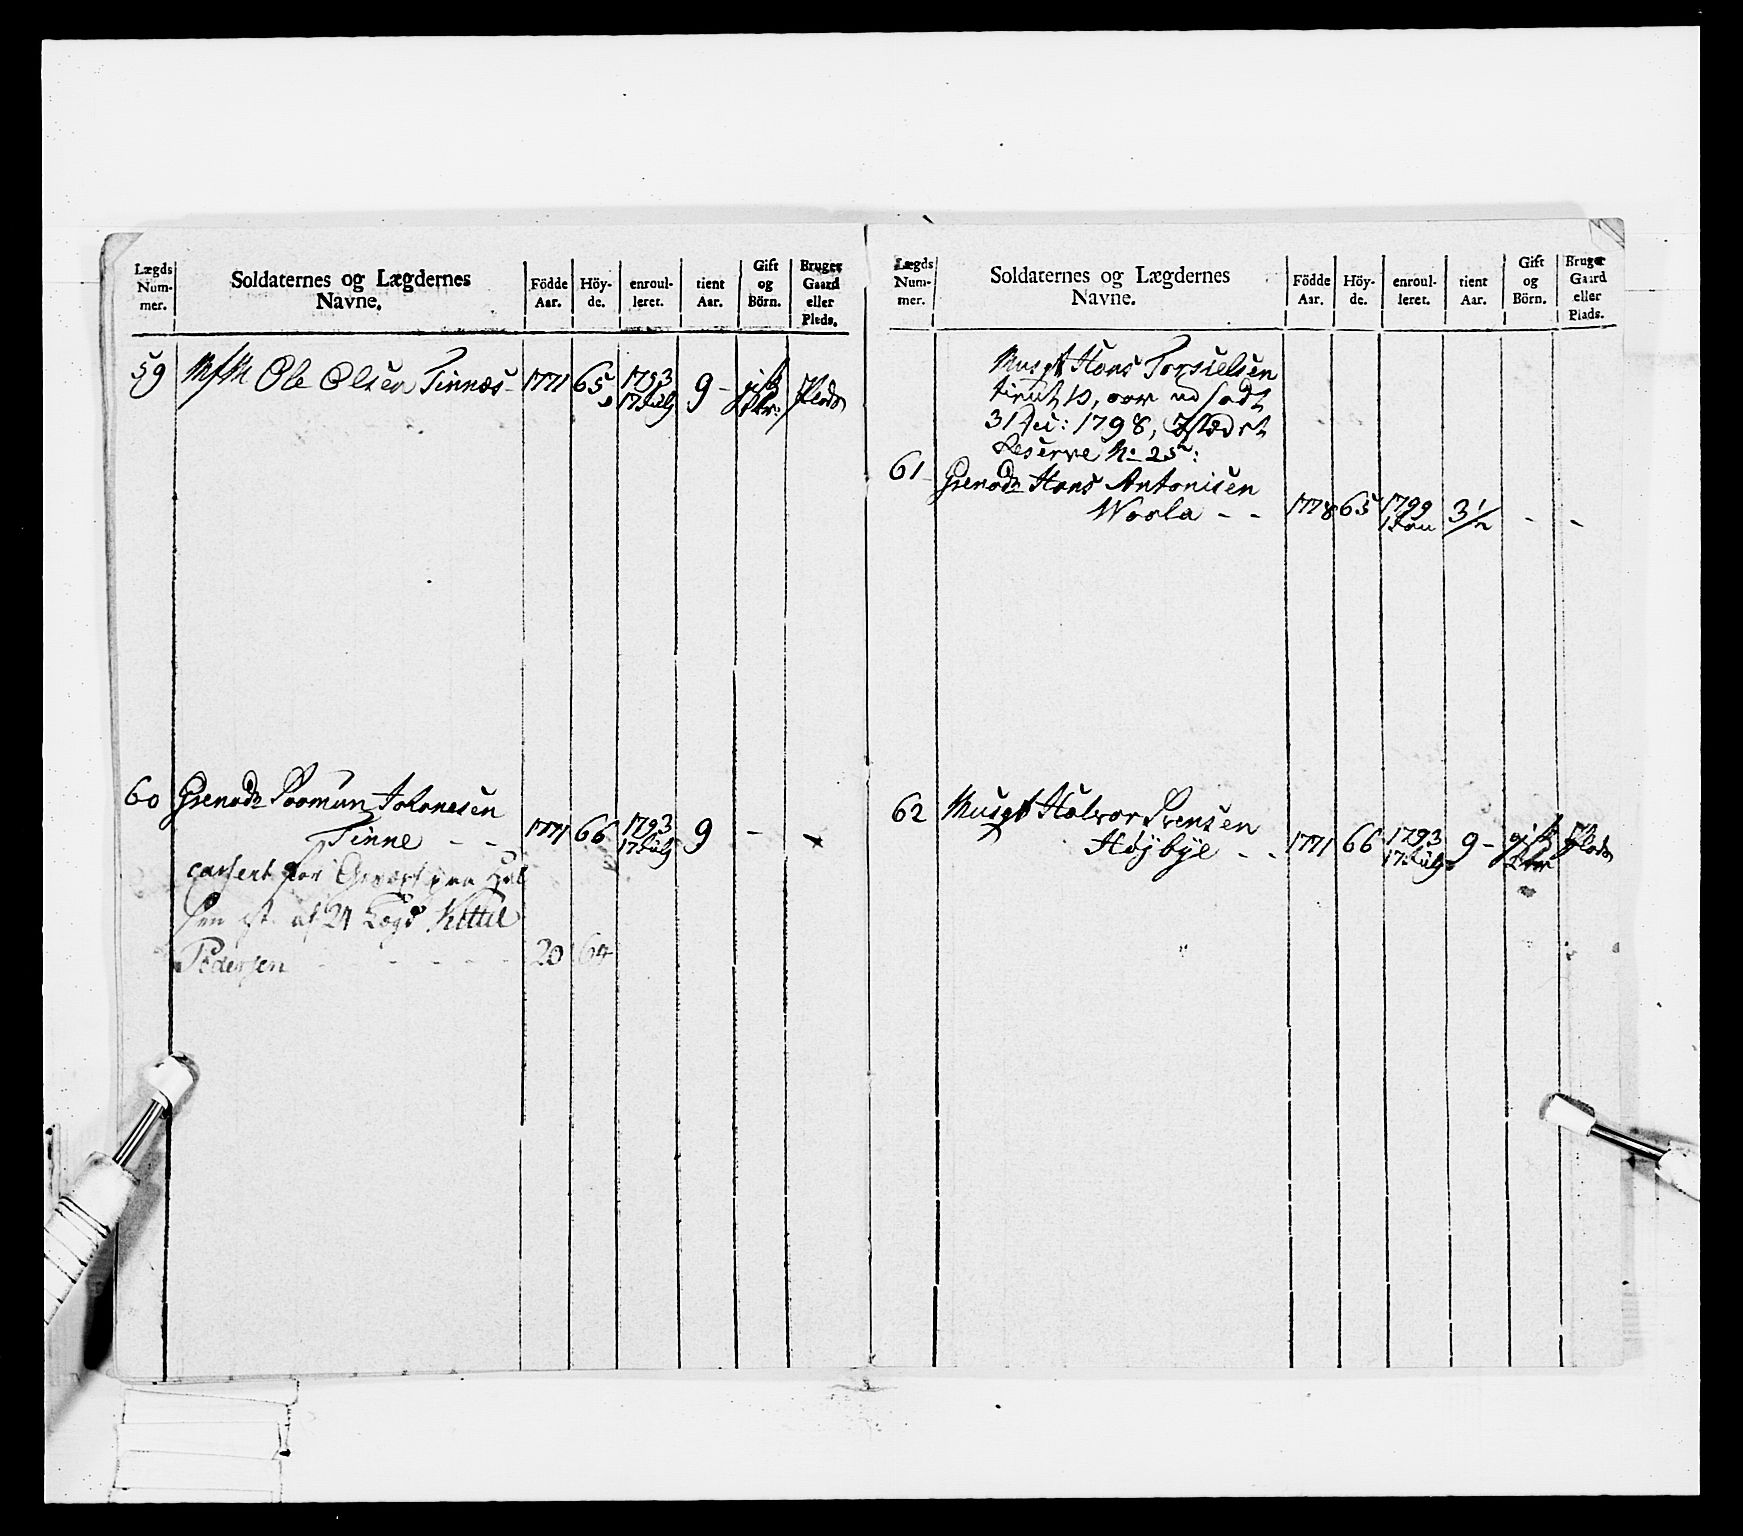 Lægds Num- mer.
Soldaternes og Lægdernes Navne.
Födde Aar.
Höy- de.
enroul- leret.
tient Aar.
Gift og Börn.
Bruger Gaard eller Plads.
59 Ole Olsen Tinnæs - 1771 65 1793 17 July 9 - gift Plads
60 Grenadr Johanesen
Tinne - - 1771 66 1793 17 July 9 -
casert for Gevær paa
af 24 Lægd Kittil
Pedersen - - - - - 20 64
Lægds Num- mer.
Soldaternes og Lægdernes Navne.
Födde Aar.
Höy- de.
enroul- leret.
tient Aar.
Gift og Börn.
Bruger Gaard eller Plads.
Musqt Hans
tient 10, aar ud
31 Dec: 1798,
Reserve No 25:
61 - Grenadr Hans Antonisen
Woola - - 1778 65 1799 1 Jan 3 1/2 - -
62 Musqt Halvor Svensen
Höybÿe - - 1771 66 1793 17 July 9 - gift Plads